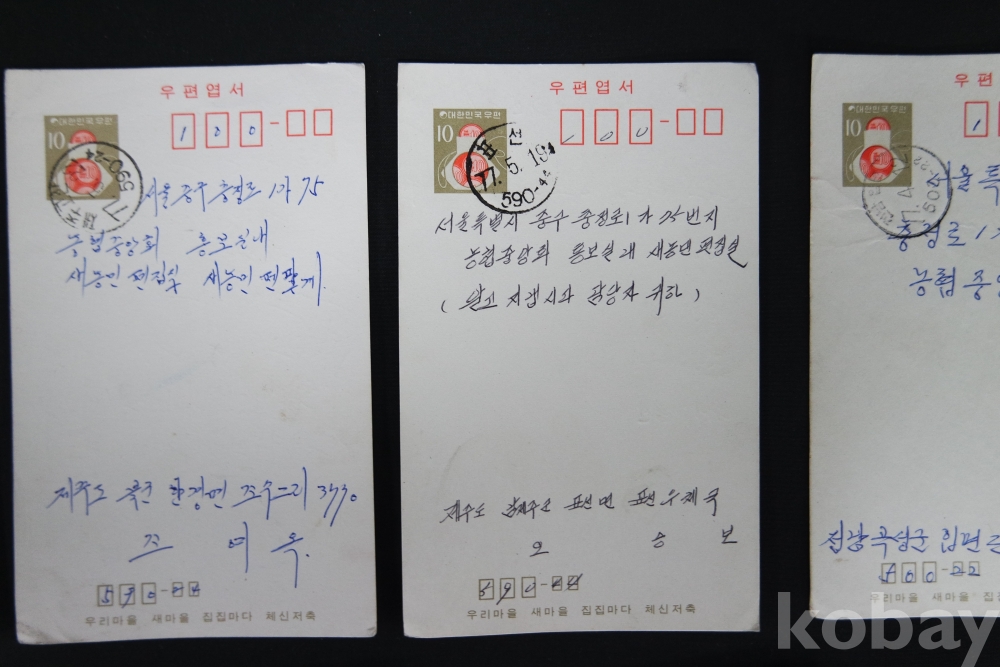 우편엽서
대한민국우편
10
100-
590-24
서울 중구 충정로 1가 75
농협중앙회 홍보실내
새농민 편집실 새농민 펜팔계
제주도 북군 한경면 조수2리 3730
조 여 옥
590-24
우리마을 새마을 집집마다 체신저축
우편엽서
대한민국우편
10
100-
표선
77.5.19
590-44
서울특별시 중구 충정로1가 75번지
농협중앙회 홍보실내 새농민편집실
담당자 귀하 )
제주도 남제주군 표선면 표선우체국
오 승 보
590-44
우리마을 새마을 집집마다 체신저축
우편
대한민국우편
10
1
서울 특
충정로 1
농협 중앙
전남 곡성군 입면
500-22
우리마을 새마을 집집
kobay